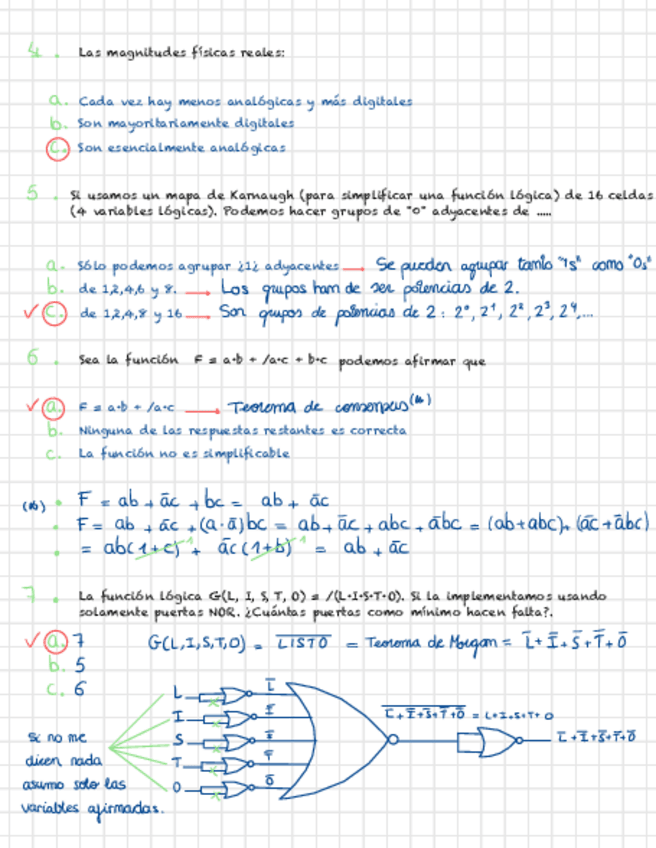 4. Las magnitudes físicas reales:
a. Cada vez hay menos analógicas y más digitales
b. Son mayoritariamente digitales
c. Son esencialmente analógicas
5. Si usamos un mapa de Karnaugh (para simplificar una función lógica) de 16 celdas
(4 variables lógicas). Podemos hacer grupos de "0" adyacentes de .....
a. Sólo podemos agrupar ¿1¿ adyacentes → Se pueden agrupar tanto "1s" como "0s"
b. de 1,2,4,6 y 8. → Los grupos han de ser potencias de 2.
✓ c. de 1,2,4,8 y 16 → Son grupos de potencias de 2 : 2⁰, 2¹, 2², 2³, 2⁴,...
6. Sea la función F = a·b + /a·c + b·c podemos afirmar que
✓ a. F = a·b + /a·c → Teorema de consenso
b. Ninguna de las respuestas restantes es correcta
c. La función no es simplificable
• F = ab + āc + bc = ab + āc
• F = ab + āc + (a·ā)bc = ab + āc + abc + ābc = (ab+abc)+ (āc+ābc)
• = ab(1+c)¹ + āc(1+b)¹ = ab + āc
7. La función lógica G(L, I, S, T, O) = /(L·I·S·T·O). Si la implementamos usando
solamente puertas NOR. ¿Cuántas puertas como mínimo hacen falta?.
✓ a. 7 G(L,I,S,T,O) = L̅I̅S̅T̅O̅ = Teorema de Morgan = L̄+Ī+S̄+T̄+Ō
b. 5
c. 6
L L̄
I Ī
S S̄
T T̄
O Ō
L̄+Ī+S̄+T̄+Ō = L+I+S+T+O
L̄+Ī+S̄+T̄+Ō
Si no me
dicen nada
asumo solo las
variables afirmadas.